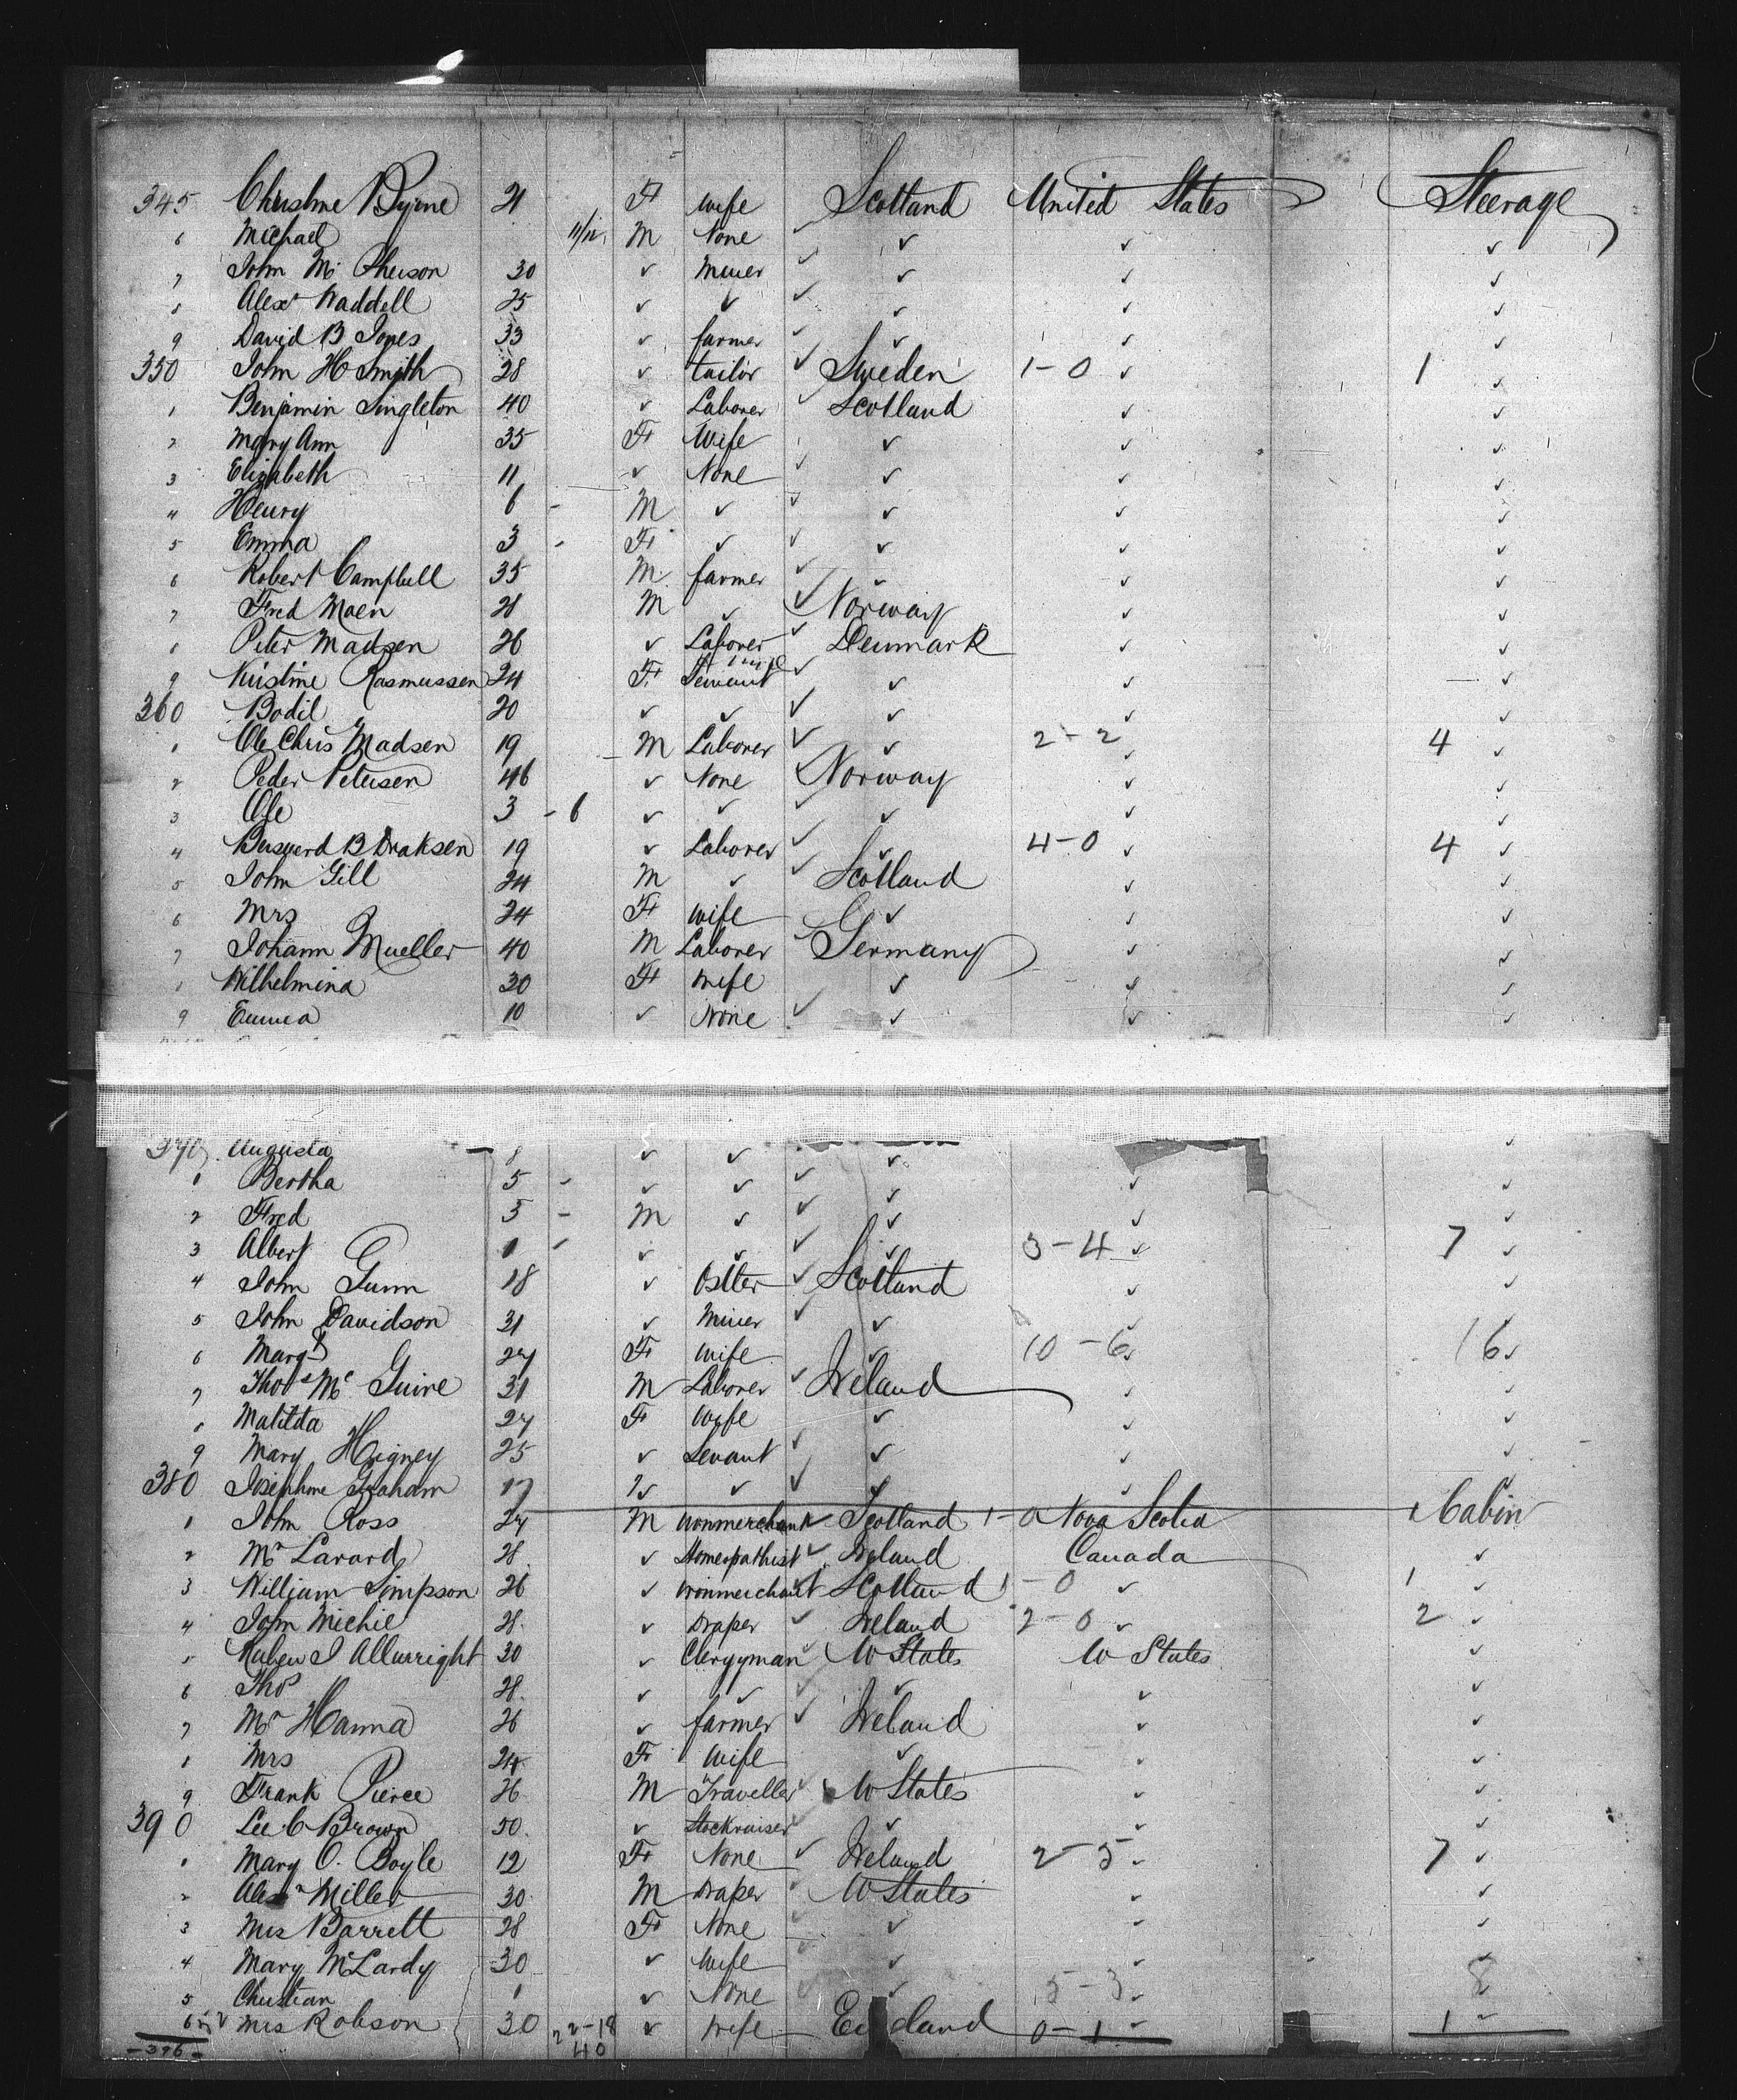 345 Christine Byrne 21 F wife Scotland United States Steerage
6 Michael 11/12 M None ✓ ✓ ✓ ✓
7 John Mc Pherson 30 ✓ Miner ✓ ✓ ✓ ✓
8 Alexr Waddell 25 ✓ ✓ ✓ ✓ ✓ ✓
9 David B Jones 33 ✓ farmer ✓ ✓ ✓ ✓
350 John H Smith 28 ✓ tailor ✓ Sweden 1-0 ✓ 1 ✓
1 Benjamin Singleton 40 ✓ Laborer ✓ Scotland ✓ ✓
2 Mary Ann 35 F Wife ✓ ✓ ✓
3 Elizabeth 11 ✓ None ✓ ✓ ✓ ✓
4 Henry 6 - M ✓ ✓ ✓ ✓ ✓
5 Emma 3 - F ✓ ✓ ✓ ✓ ✓
6 Robert Campbell 35 M farmer ✓ ✓ ✓ ✓
7 Fred Moen 28 M ✓ ✓ Norway ✓ ✓
8 Peter Madsen 26 ✓ Laborer ✓ Denmark ✓ ✓
9 Kristine Rasmussen 24 F Servant ✓ ✓ ✓ ✓
360 Bodil 20 ✓ ✓ ✓ ✓ ✓ ✓
1 Ole Chris Madsen 19 M Laborer ✓ ✓ 2-2 ✓ 4 ✓
2 Peder Petersen 46 ✓ None ✓ Norway ✓ ✓
3 Ole 3 - 6 ✓ ✓ ✓ ✓ ✓ ✓
4 B Draksen 19 ✓ Laborer ✓ ✓ 4-0 ✓ 4 ✓
5 John Gill 24 M ✓ ✓ Scotland ✓ ✓
6 Mrs 24 F wife ✓ ✓ ✓
7 Johann Mueller 40 M Laborer ✓ Germany ✓ ✓
8 Wilhelmina 30 F wife ✓ ✓ ✓
9 Emma 10 ✓ None ✓ ✓ ✓ ✓
370 Augusta 8 ✓ ✓ ✓ ✓
1 Bertha 5 - ✓ ✓ ✓ ✓ ✓ ✓
2 Fred 3 - M ✓ ✓ ✓ ✓ ✓
3 Albert 1 - ✓ ✓ ✓ ✓ 3-4 ✓ 7 ✓
4 John Gunn 18 ✓ Ostler ✓ Scotland ✓ ✓
5 John Davidson 31 ✓ Miner ✓ ✓ ✓ ✓
6 Margt 27 F wife ✓ 10-6 ✓ 16 ✓
7 Thos Mc Guire 31 M Laborer ✓ Ireland ✓ ✓
8 Matilda 27 F Wife ✓ ✓ ✓
9 Mary Higney 25 ✓ Servant ✓ ✓ ✓ ✓
380 Josephine Graham 17 ✓ ✓ ✓ ✓ ✓ ✓
1 John Ross 27 M Ironmerchant ✓ Scotland 1-0 Nova Scotia Cabin
2 Mr Larard 28 ✓ Homeopathist ✓ Ireland Canada ✓
3 William Simpson 26 ✓ Ironmerchant Scotland 1-0 ✓ 1 ✓
4 John Michie 28 ✓ Draper ✓ Ireland 2-0 ✓ 2 ✓
5 30 ✓ Clergyman ✓ U States U States ✓
6 Thos 28 ✓ ✓ ✓ ✓ ✓ ✓
7 Mr Hanna 26 ✓ farmer ✓ Ireland ✓ ✓
8 Mrs 24 F Wife ✓ ✓ ✓
9 Frank Pierce 26 M Traveller ✓ U States ✓ ✓
390 Lee C Brown 50 ✓ Stockraiser ✓ ✓ ✓ ✓
1 Mary O. Boyle 12 F None ✓ Ireland 2-5 ✓ 7 ✓
2 Alexr Miller 30 M Draper ✓ U States ✓ ✓
3 Mrs Barrett 28 F None ✓ ✓ ✓ ✓
4 Mary McLardy 30 ✓ Wife ✓ ✓ ✓ ✓
5 Christian 1 ✓ None ✓ ✓ 5-3 ✓ 8
6 Mrs Robson 30 22-18 ✓ Wife England 0-1 ✓ 1 ✓
-396- 40